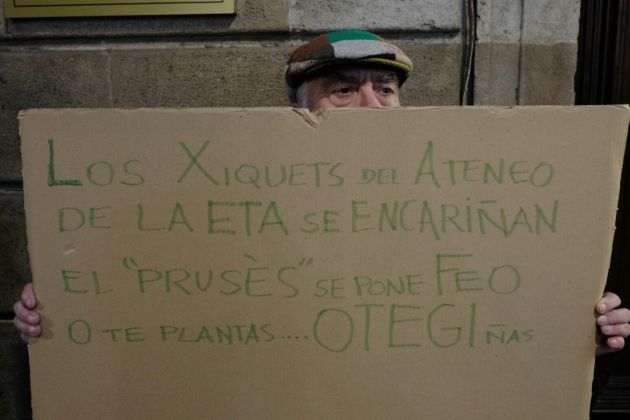 Los Xiquets del Ateneo
de la ETA se encariñan
el "prusès" se pone Feo
o te plantas.... OTEGIñas